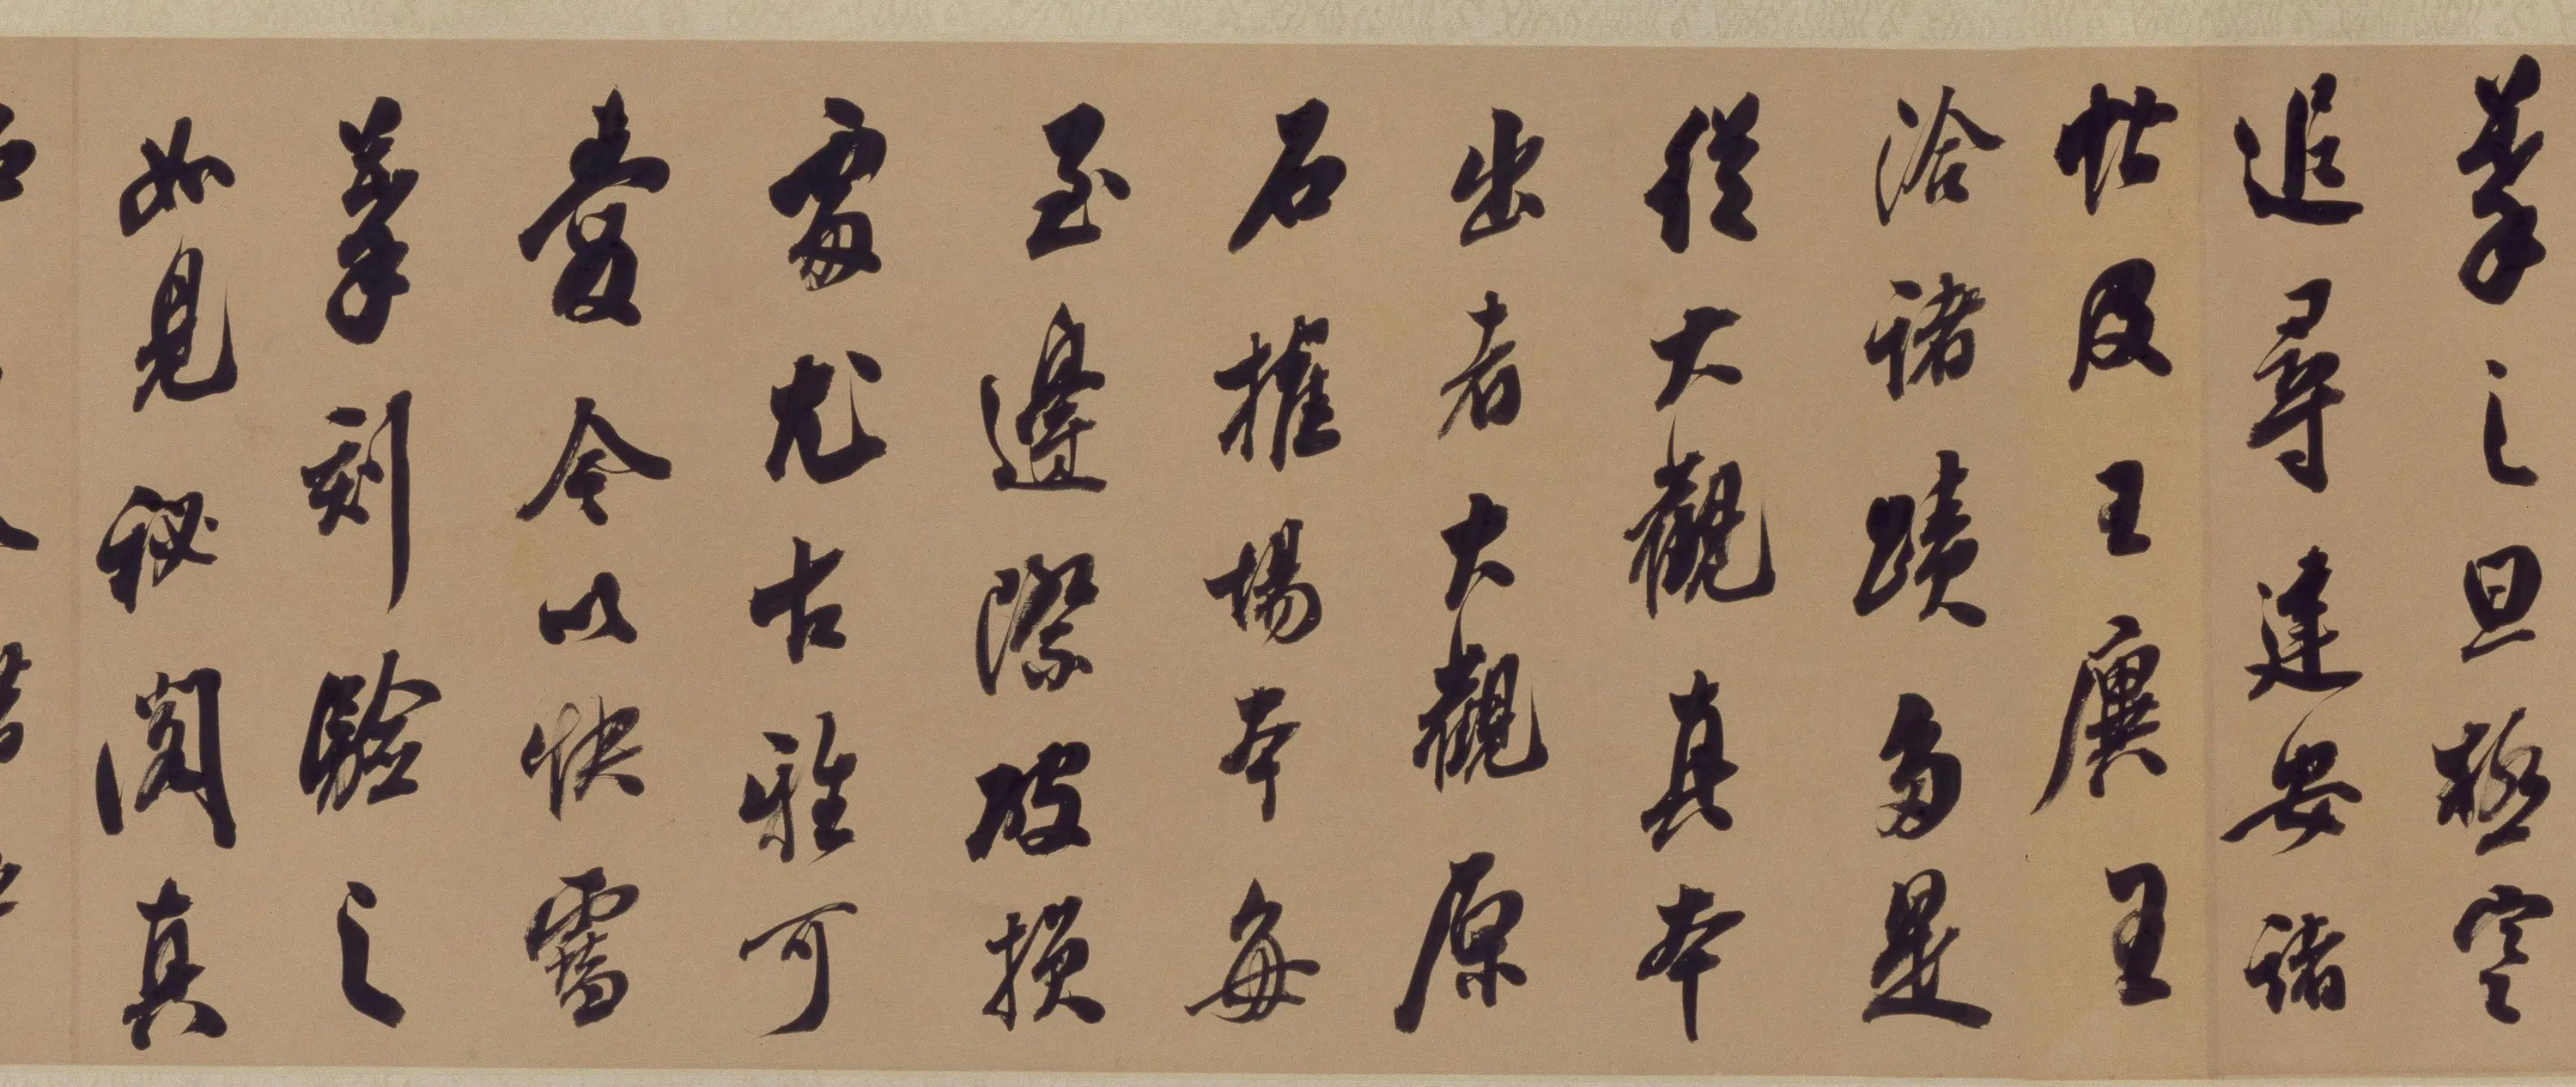 摹之且極
追尋建安諸
帖及王廙王
洽諸蹟多是
從大觀真本
出者大觀原
石榷場本每
至邊際破損
處尤古雅可
愛今以快雪
摹刻驗之
如見秘閣真